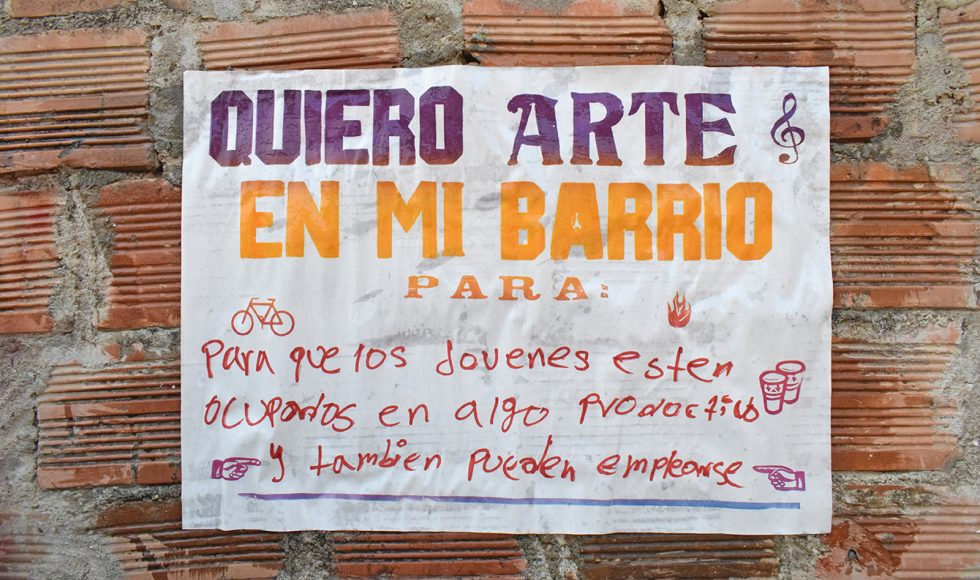 QUIERO ARTE
EN MI BARRIO
PARA:
Para que los Jovenes esten
ocupados en algo productivo
y tambien pueden emplearse